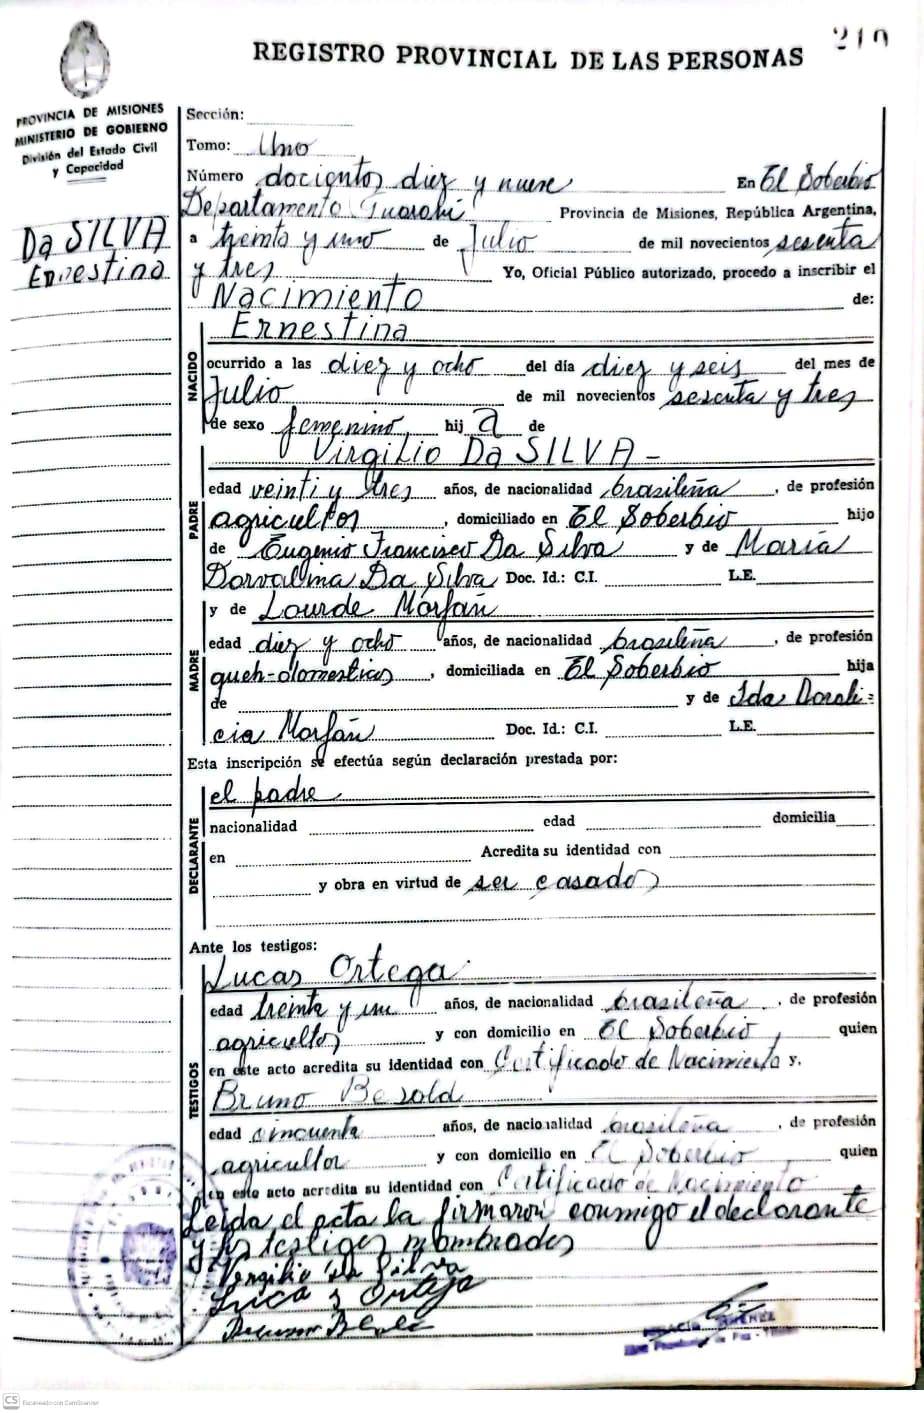 219
REGISTRO PROVINCIAL DE LAS PERSONAS
PROVINCIA DE MISIONES
MINISTERIO DE GOBIERNO
División del Estado Civil
y Capacidad
Da SILVA
Ernestina
Sección:
Tomo: Uno
Número docientos diez y nueve En El Soberbio
Departamento Guaraní Provincia de Misiones, República Argentina,
a treinta y uno de Julio de mil novecientos sesenta
y tres Yo, Oficial Público autorizado, procedo a inscribir el
Nacimiento de:
NACIDO
Ernestina
ocurrido a las diez y ocho del día diez y seis del mes de
Julio de mil novecientos sesenta y tres
de sexo femenino hija de
PADRE
Virgilio Da SILVA -
edad veinti y tres años, de nacionalidad brasileña, de profesión
agricultor, domiciliado en El Soberbio hijo
de Eugenio Francisco Da Silva y de María
Dorvalina Da Silva Doc. Id.: C.I. L.E.
MADRE
y de Lourde Morfán
edad diez y ocho años, de nacionalidad brasileña, de profesión
queh-domesticos, domiciliada en El Soberbio hija
de y de Ida Dorali=
cia Morfán Doc. Id.: C.I. L.E.
Esta inscripción se efectúa según declaración prestada por:
DECLARANTE
el padre
nacionalidad edad domicilia
en Acredita su identidad con
y obra en virtud de ser casados
Ante los testigos:
TESTIGOS
Lucas Ortega
edad treinta y un años, de nacionalidad brasileña, de profesión
agricultor y con domicilio en El Soberbio quien
en este acto acredita su identidad con Certificado de Nacimiento y.
Bruno Besold
edad cincuenta años, de nacionalidad brasileña, de profesión
agricultor y con domicilio en El Soberbio quien
en este acto acredita su identidad con Certificado de Nacimiento
Leida el acta la firmaron conmigo el declarante
y los testigos nombrados
Vergilio da Silva
Lucas Ortega
CS Escaneado con CamScanner